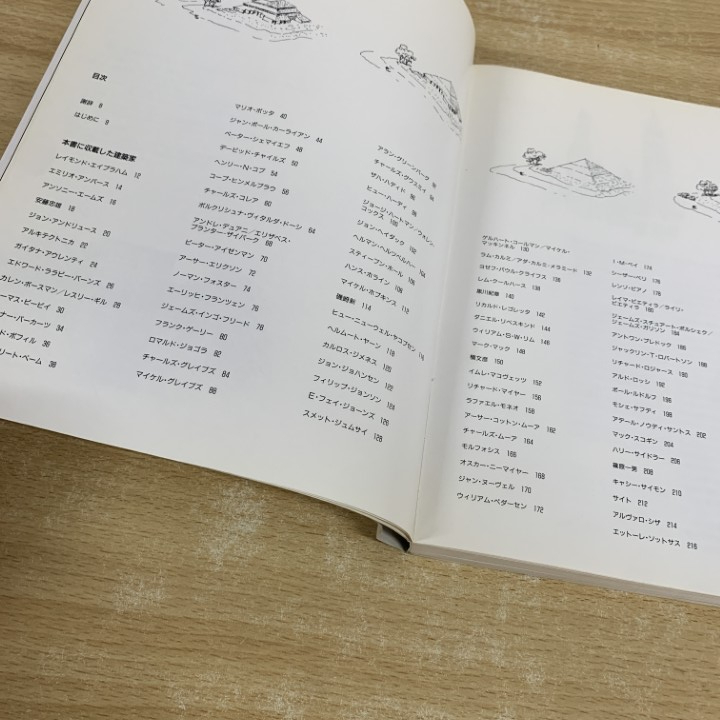 目次
謝辞 8
はじめに 9
本書に収載した建築家
レイモンド・エイブラハム 12
エミリオ・アンバース 14
アンソニー・エームズ 16
安藤忠雄 18
ジョン・アンドリュース 20
アルキテクトニカ 22
ガイタナ・アウレンティ 24
エドワード・ララビー・バーンズ 26
カレン・ボースマン/レスリー・ギル 28
ーマス・ビービイ 30
ナー・バーカーツ 34
ド・ボフィル 36
リート・ベーム 38
マリオ・ボッタ 40
ジャン・ポール・カーライアン 44
ピーター・シェマイエフ 46
デービッド・チャイルズ 50
ヘンリー・N・コブ 54
コープ・ヒンメルブラウ 56
チャールズ・コレア 60
ボルクリシュナ・ヴィタルダ・ドーシ 64
アンドレ・デュアニ/エリザベス・
プランター・ザイバーク 68
ピーター・アイゼンマン 70
アーサー・エリクソン 72
ノーマン・フォスター 74
エーリッヒ・フランツェン 76
ジェームズ・インゴ・フリード 78
フランク・ゲーリー 80
ロマルド・ジョゴラ 82
チャールズ・グレイブズ 84
マイケル・グレイブズ 86
アラン・グリーンバーグ
チャールズ・グワスミイ
ザハ・ハディド
ヒュー・ハーディ
ジョージ・ハートマン/ウォレン・
コックス
ジョン・ヘイダック 102
ヘルマン・ヘルツベルハー
スティーブン・ホール 106
ハンス・ホライン 108
マイケル・ホプキンス 112
磯崎新 114
ヒュー・ニューウェル・ヤコブセン
ヘルムート・ヤーン 118
カルロス・ジメネス 120
ジョン・ジョハンセン
フィリップ・ジョンソン 124
E・フェイ・ジョーンズ 126
スメット・ジュムサイ 128
ゲルハート・コールマン/マイケル・
マッキンネル 130
ラム・カルミ/アダ・カルミ・メラミード 132
ヨゼフ・パウル・クライフス 136
レム・クールハース 138
黒川紀章 140
リカルド・レゴレッタ 142
ダニエル・リベスキンド 144
ウィリアム・S・W・リム 146
マーク・マック 148
槇文彦 150
イムレ・マコヴェッツ 152
リチャード・マイヤー 156
ラファエル・モネオ 158
アーサー・コットン・ムーア 162
チャールズ・ムーア 164
モルフォシス 166
オスカー・ニーマイヤー 168
ジャン・ヌーヴェル 170
ウィリアム・ペダーセン 172
I・M・ペイ 174
シーザー・ペリ 176
レンゾ・ピアノ 178
レイマ・ピエティラ/ライリ・
ピエティラ 180
ジェームズ・スチュアート・ポルシェク/
ジェームズ・ガリソン 184
アントワン・プレドック 186
ジャックリン・T・ロバートソン 188
リチャード・ロジャース 190
アルド・ロッシ 192
ポール・ルドルフ 196
モシェ・サフディ 198
アデール・ノウディ・サントス 202
マック・スコギン 204
ハリー・サイドラー 206
篠原一男 208
キャシー・サイモン 210
サイト 212
アルヴァロ・シザ 214
エットーレ・ソットサス 216